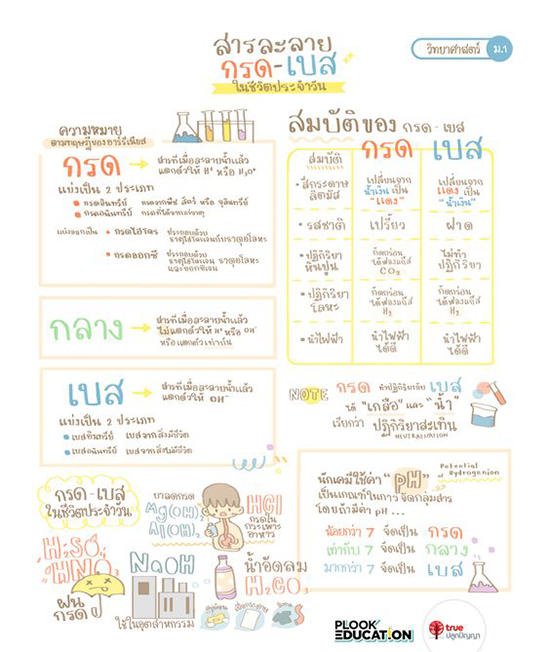 สารละลาย
กรด-เบส
ในชีวิตประจำวัน
วิทยาศาสตร์ ม.1
ความหมาย
ตามทฤษฎีของอาร์รีเนียส
กรด → สารที่เมื่อละลายน้ำแล้ว
แตกตัวให้ H⁺ หรือ H₃O⁺
แบ่งเป็น 2 ประเภท
กรดอินทรีย์ กรดจากพืช สัตว์ หรือ จุลินทรีย์
กรดอนินทรีย์ กรดที่ได้จากแร่ธาตุ
แบ่งออกเป็น • กรดไฮโดร ประกอบด้วย
ธาตุไฮโดรเจนกับธาตุอโลหะ
• กรดออกซี ประกอบด้วย
ธาตุไฮโดรเจน ธาตุอโลหะ
และออกซิเจน
กลาง → สารที่เมื่อละลายน้ำแล้ว
ไม่แตกตัวให้ H⁺ หรือ OH⁻
หรือแตกตัวเท่ากัน
เบส → สารที่เมื่อละลายน้ำแล้ว
แตกตัวให้ OH⁻
แบ่งเป็น 2 ประเภท
เบสอินทรีย์ เบสจากสิ่งมีชีวิต
เบสอนินทรีย์ เบสจากสิ่งไม่มีชีวิต
สมบัติของ กรด - เบส
สมบัติ กรด เบส
• สีกระดาษลิตมัส เปลี่ยนจากน้ำเงินเป็น "แดง" เปลี่ยนจากแดง เป็น "น้ำเงิน"
• รสชาติ เปรี้ยว ฝาด
• ปฏิกิริยาหินปูน กัดกร่อนได้ฟองแก๊ส CO₂ ไม่ทำปฏิกิริยา
• ปฏิกิริยาโลหะ กัดกร่อนได้ฟองแก๊ส H₂ กัดกร่อนได้ฟองแก๊ส H₂
• นำไฟฟ้า นำไฟฟ้าได้ดี นำไฟฟ้าได้ดี
NOTE กรด ทำปฏิกิริยากับ เบส
ได้ "เกลือ" และ "น้ำ"
เรียกว่า ปฏิกิริยาสะเทิน
NEUTRALIZATION
นักเคมีใช้ค่า "pH" → Potential of Hydrogenion
เป็นเกณฑ์ในการ จัดกลุ่มสาร
โดยถ้ามีค่า pH ...
น้อยกว่า 7 จัดเป็น กรด
เท่ากับ 7 จัดเป็น กลาง
มากกว่า 7 จัดเป็น เบส
กรด - เบส
ในชีวิตประจำวัน
ยาลดกรด
Mg(OH)₂
Al(OH)₃
HCl
กรดใน
กระเพาะ
อาหาร
H₂SO₄
HNO₃
ฝน
กรด
NaOH
ใช้ในอุตสาหกรรม
น้ำอัดลม
H₂CO₃
PLOOK
EDUCATION
true
ปลูกปัญญา